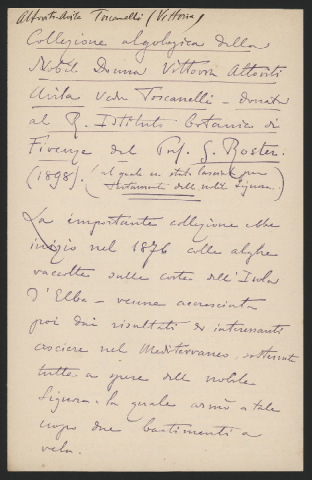 Altoviti-Avila Toscanelli (Vittoria)
Collezione algologica della
Nobil Donna Vittoria Altoviti
Avila Ved. Toscanelli – donata
al R. Istituto botanico di
Firenze dal Prof. G. Roster.
(1898). (al quale era stata lasciata per
testamento della nobil Signora.)
La importante collezione ebbe
inizio nel 1876 colle alghe
raccolte sulle coste dell'Isola
d'Elba – venne accresciuta
poi dai risultati di interessanti
crociere nel Mediterraneo, sostenute
tutte a spese della nobile
Signora. la quale armò a tale
uopo due bastimenti a
vela.